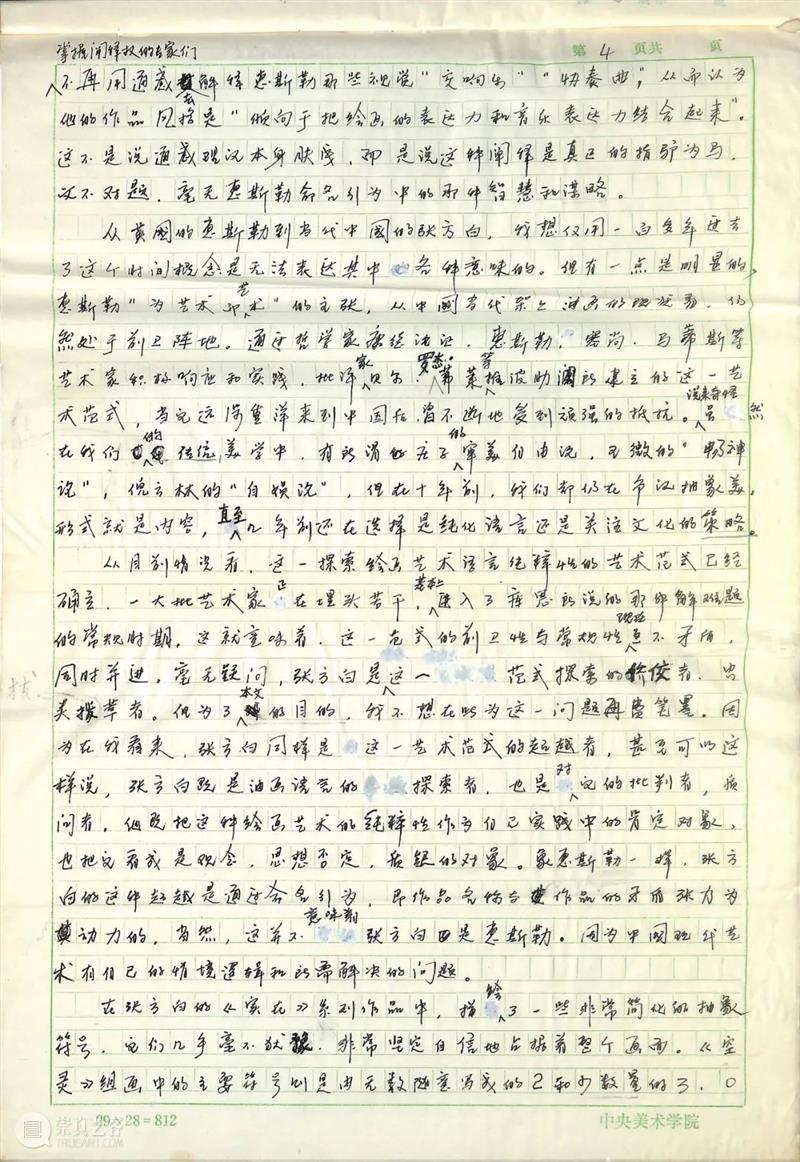 第 4 页共 页
掌握阐释权的专家们
不再用通感去解释惠斯勒那些视觉“交响乐”“协奏曲”，从而认为
他的作品风格是“倾向于把绘画的表达力和音乐表达力结合起来”。
这不是说通感理论本身肤浅，而是说这种阐释是真正的指驴为马，
文不对题，毫无惠斯勒命名行为中的那种智慧和谋略。
从英国的惠斯勒到当代中国的张方白，我想仅用一百多年过去
了这个时间概念是无法表达其中各种意味的。但有一点是明显的，
惠斯勒“为艺术而艺术”的主张，从中国当代架上油画的现状看，仍
然处于前卫阵地。通过哲学家康德论证，惠斯勒、塞尚、马蒂斯等
艺术家积极响应和实践，批评家贝尔、罗杰·弗莱等推波助澜所建立的这一艺
术范式，当它远涉重洋来到中国后，曾不断地受到顽强的抵抗。说来奇怪，虽然
在我们的传统美学中，有所谓庄子的审美自由说，王微的“畅神
说”，倪云林的“自娱说”，但在十年前，我们却仍在争议抽象美，
形式就是内容，直至几年前还在选择是纯化语言还是关注文化的策略。
从目前情况看，这一探索绘画艺术语言纯粹性的艺术范式已经
确立，一大批艺术家正在埋头苦干，基本上进入了库恩所说的那种解难题
的常规时期，这就意味着，这一范式的前卫性与常规性现在互不矛盾，
同时并进。毫无疑问，张方白是这一范式探索的佼佼者，出
类拔萃者。但为了本文的目的，我不想在此为这一问题再费笔墨。因
为在我看来，张方白同样是这一艺术范式的超越者，甚至可以这
样说，张方白既是油画语言的探索者，也是对它的批判者，质
问者。他既把这种绘画艺术的纯粹性作为自己实践中的肯定对象，
也把它看成是观念、思想否定、质疑的对象。象惠斯勒一样，张方
白的这种超越是通过命名行为，即作品名称与作品的矛盾张力为
动力的。当然，这并不意味着张方白四是惠斯勒。因为中国现代艺
术有自己的情境逻辑和所需解决的问题。
在张方白的《实在》系列作品中，描绘了一些非常简化的抽象
符号，它们几乎毫不犹豫、非常坚定自信地占据着整个画面。《空
灵》组画中的主要符号则是由无数随意写成的2和少数量的3、0
拔
29×28=812
中央美术学院
崇真艺客
TRUEART.COM